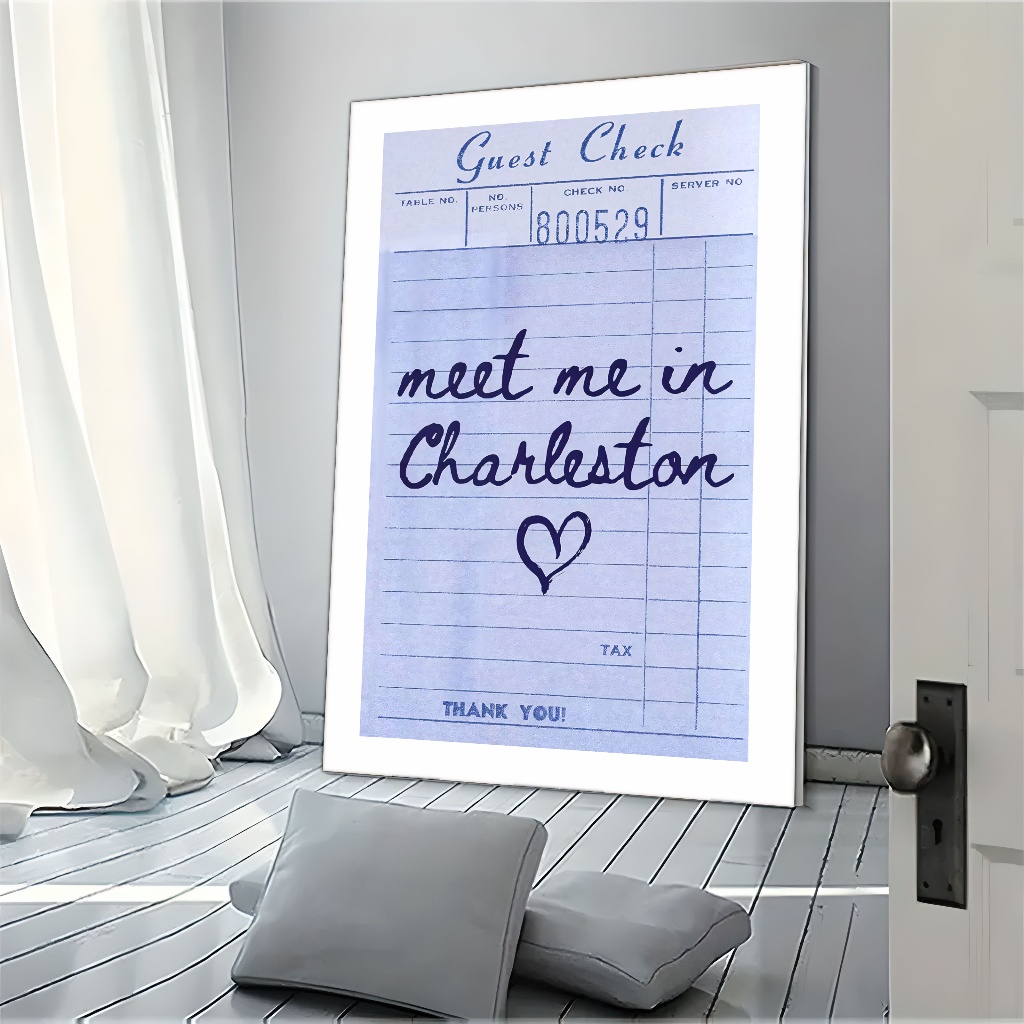 Guest Check
TABLE NO. NO. PERSONS CHECK NO. SERVER NO
800529
meet me in
Charleston
TAX
THANK YOU!